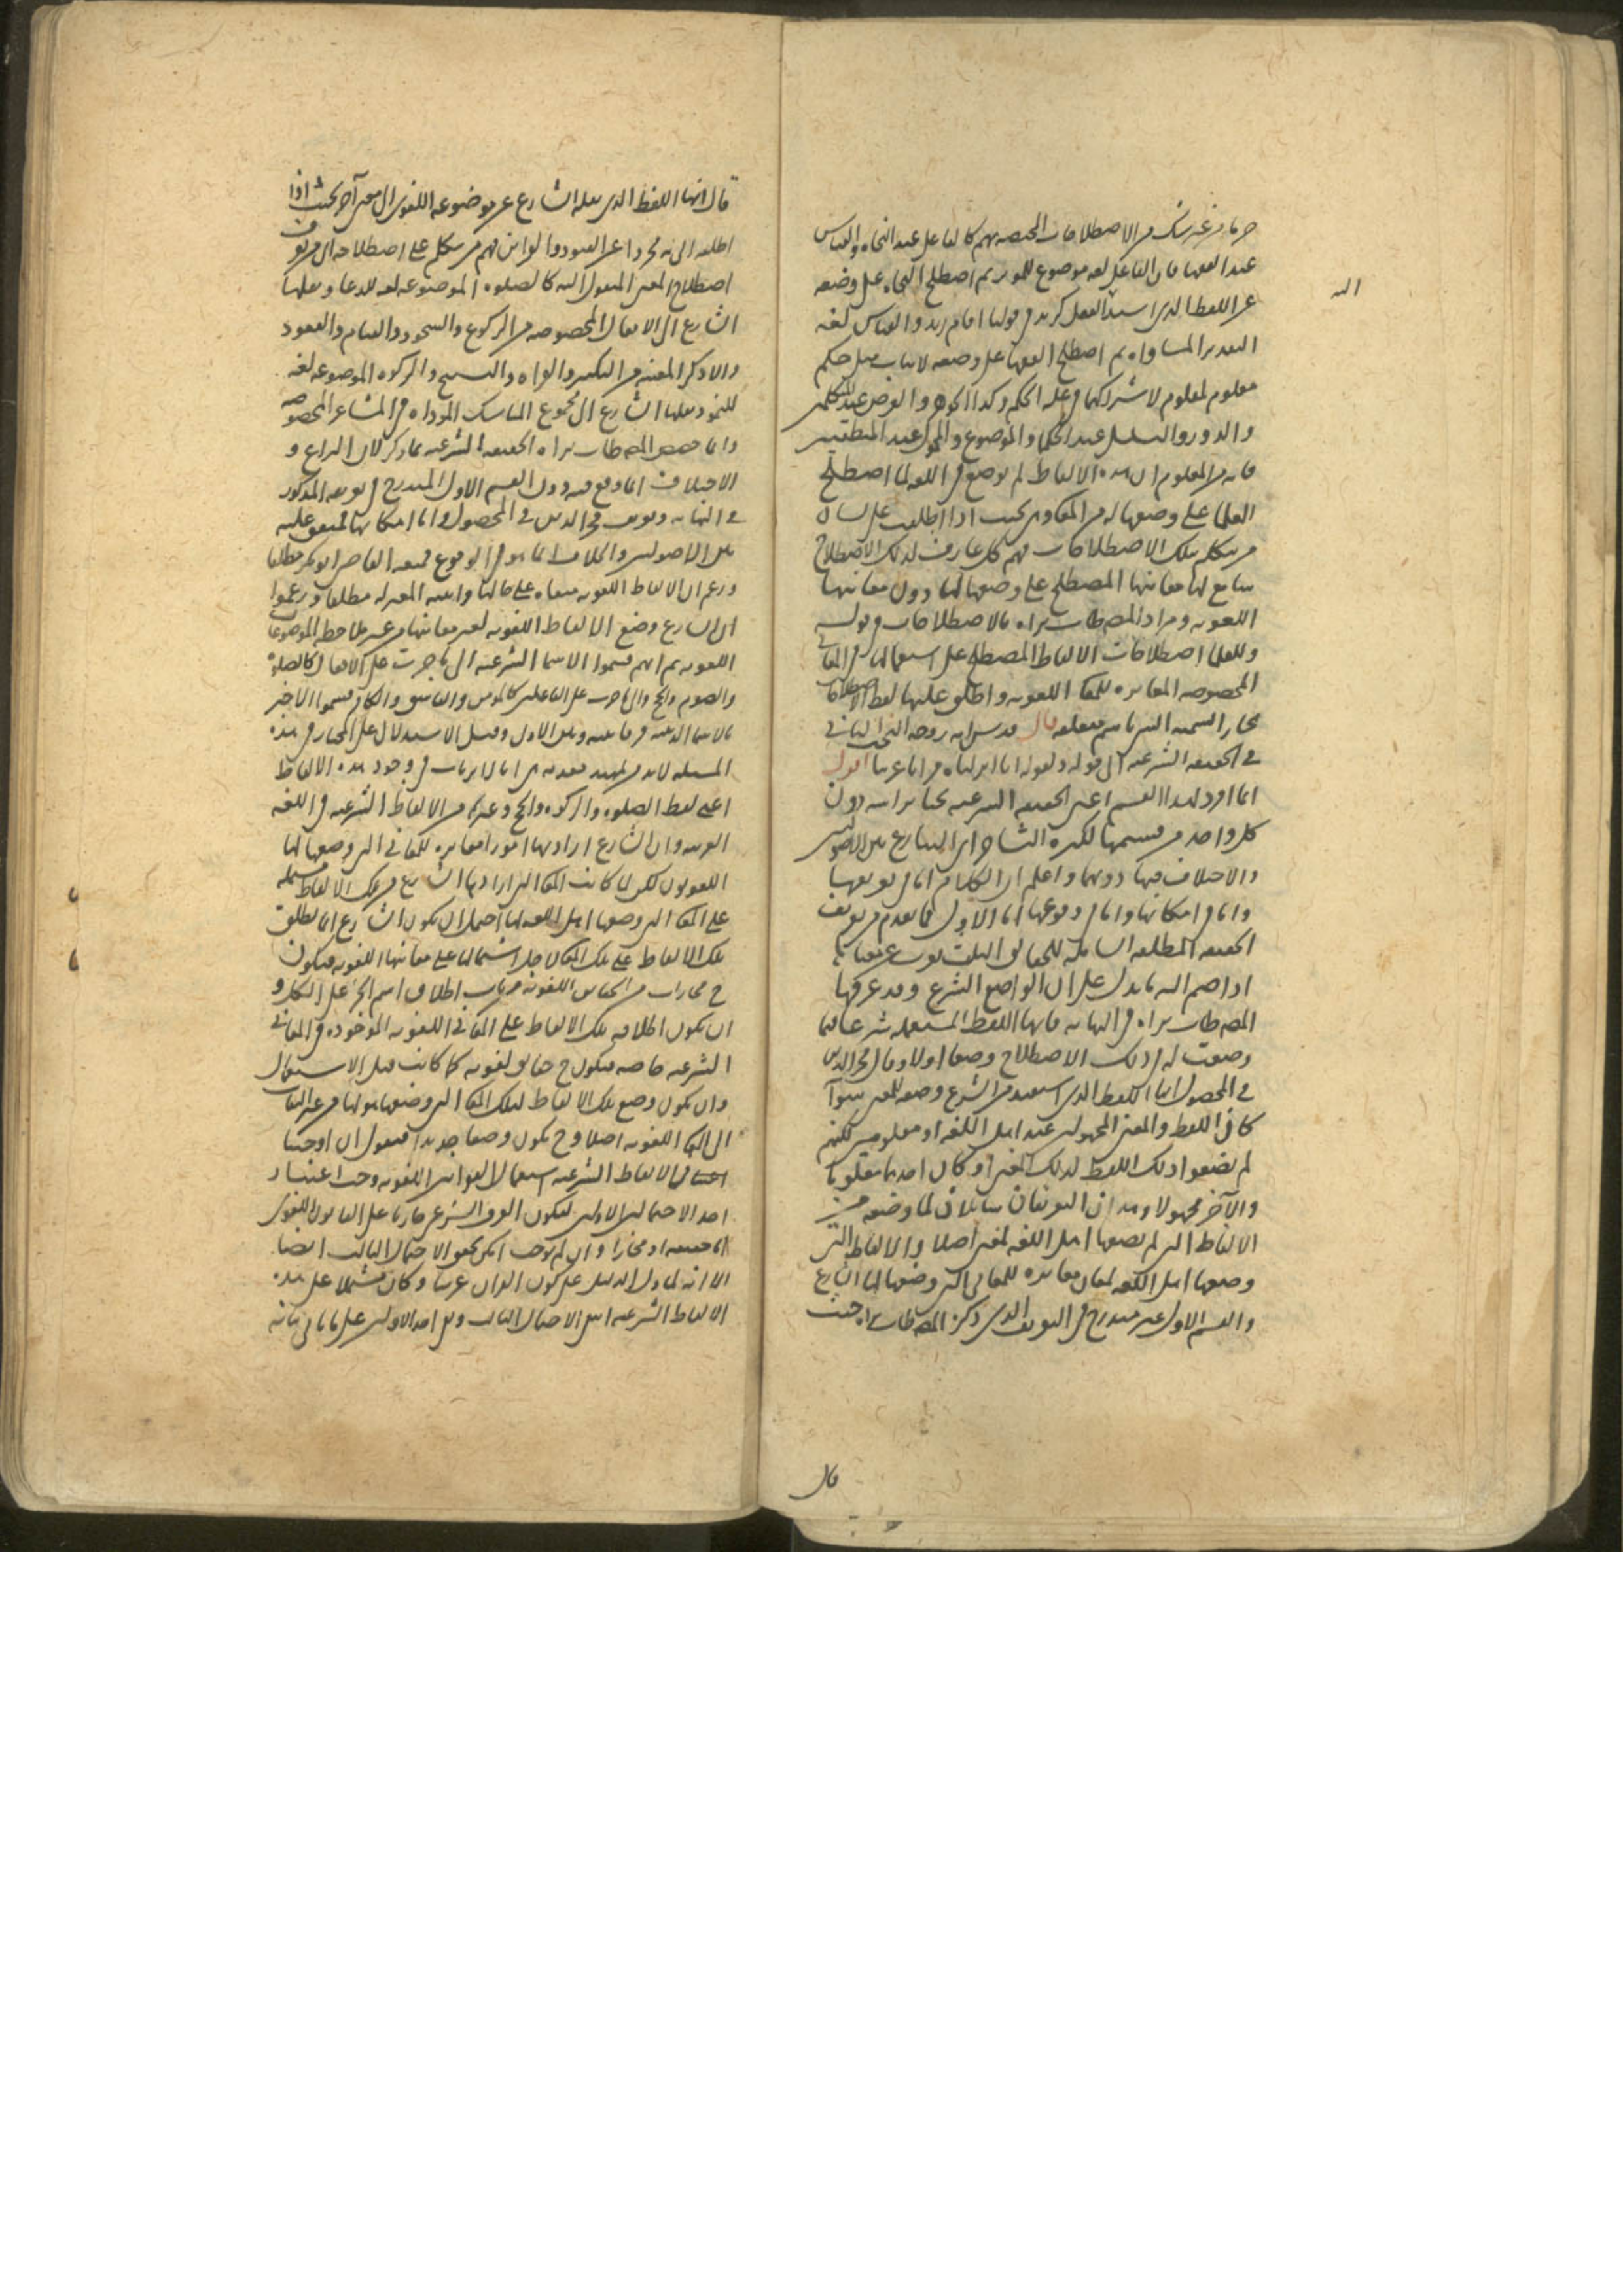 حرما من غير شك من الاصطلاحات المختصة بهم كالفاعل عند النحاة والقياس
عند الفقهاء فان الفاعل لغة موضوع للموثر ثم اصطلح النحاة على وضعه
اليه
اللفظ الذي اسند الفعل كزيد في قولنا اقام زيد والقياس لغة
التقدير المساواة ثم اصطلح الفقهاء على وضعه لاثبات مثل حكم
معلوم لمعلوم لاشتراكهما في علة الحكم وكذا الجوهر والعرض عند المتكلمين
والدور والتسلسل عند الحكماء والموضوع والمحمول عند المنطقيين
فانه من المعلوم ان هذه الالفاظ لم توضع في اللغة لما اصطلح
العلما على وضعها له من المعاني بحيث اذا اطلقت على لسان
من يتكلم بتلك الاصطلاحات فهم كل عارف لذلك الاصطلاح
سامع لها معانيها المصطلح على وضعها لها دون معانيها
اللغوية ومراد المص طاب ثراه بالاصطلاحات في قوله
وللعلما اصطلاحات الالفاظ المصطلح على استعمالها في المعاني
المخصوصة المغايرة للمعاني اللغوية واطلق عليها لفظ الاصطلاحات
مجازا لتسمية الشي باسم متعلقه قال قدس الله روحه البحث الثاني
في الحقيقة الشرعية الى قوله ولقوله انا انزلناه قرانا عربيا اقول
انما افرد لهذا القسم اعني الحقيقة الشرعية بحثا براسه دون
كل واحد من قسميها لكثرة التشاجر اي التنازع بين الاصوليين
والاختلاف فيها دونهما واعلم ان الكلام اما في تعريفها
واما في امكانها واما في وقوعها اما الاول فما تقدم من تعريف
الحقيقة المطلقة الشاملة للحقايق الثلث
اذا ضم اليه ما يدل على ان الواضع الشرع وقد عرفها
المص طاب ثراه في النهاية بانها اللفظة المستعملة شرعا فيما
وضعت له في ذلك الاصطلاح وضعا اولا وقال فخر الدين
في المحصول انها اللفظ الذي استفيد من الشرع وضعه للمعنى سوآ
كان اللفظ والمعنى مجهولين عند اهل اللغة او معلومين لكنهم
لم يضعوا ذلك اللفظ لذلك المعنى او كان احدهما معلوما
والآخر مجهولا وهذان التعريفان شاملان لما وضعه من
الالفاظ التي لم يضعها اهل اللغة لمعنى اصلا والالفاظ التي
وضعها اهل اللغة لمعان مغايرة للمعاني التي وضعها لها الشارع
والقسم الاول غير مندرج في التعريف الذي ذكره المص طاب ثراه حيث
قال
قال انها اللفظ الذي نقله الشارع عن موضوعه اللغوي الى معنى آخر بحيث اذا
اطلقه اي مجردا عن القيود والقراين فهم من يتكلم على اصطلاحه اي من يعرف
اصطلاح المعنى المنقول اليه كالصلوة الموضوعة لغة للدعا ونقلها
الشارع الى الافعال المخصوصة من الركوع والسجود والقيام والقعود
والاذكار المعينة من التكبير والقراءة والتسبيح والزكوة الموضوعة لغة
للنمو ونقلها الشارع الى مجموع المناسك الموداة في المشاعر المخصوصة
وانما خصص المص طاب ثراه الحقيقة الشرعية بما ذكر لان النزاع و
الاختلاف انما وقع فيه دون القسم الاول المندرج في تعريفه المذكور
في النهاية وتعريف فخر الدين في المحصول واما امكانها فمتفق عليه
بين الاصوليين والخلاف انما هو في الوقوع فمنعه القاضي ابو بكر مطلقا
وزعم ان الالفاظ اللغوية مبقاة على حالها واثبته المعتزلة مطلقا وزعموا
ان الشارع وضع الالفاظ اللغوية لغير معانيها من غير ملاحظة الموضوعات
اللغوية ثم انهم قسموا الاسما الشرعية الى ما جرت على الافعال كالصلوة
والصوم والحج والى ما جرت على الفاعلين كالمومن والفاسق والكافر وسموا الاخير
بالاسما الدينية فرقا بينه وبين الاول وقبل الاستدلال على المختار في هذه
المسئلة لابد من تمهيد مقدمة هي انا لا نرتاب في وجود هذه الالفاظ
اعني لفظ الصلوة والزكوة والحج وغيرها من الالفاظ الشرعية في اللغة
العربية وان الشارع اراد بها امورا مغايرة للمعاني التي وضعها لها
اللغويون لكن لما كانت المعاني التي ارادها الشارع من تلك الالفاظ مشتملة
على المعاني التي وضعها اهل اللغة لها احتمل ان يكون الشارع انما يطلق
تلك الالفاظ على تلك المعاني لاجل اشتمالها على معانيها اللغوية فيكون
ح مجازات من الحقايق اللغوية من باب اطلاق اسم الجزء على الكل و
ان يكون اطلاقه تلك الالفاظ على المعاني اللغوية الموجودة في المعاني
الشرعية خاصة فيكون ح حقايق لغوية كما كانت قبل الاستعمال
وان يكون وضع تلك الالفاظ لتلك المعاني التي وضعها هو لها من غير التفات
الى المعاني اللغوية اصلا وح يكون وضعا جديدا فنقول ان اوجبنا
في الالفاظ الشرعية استعمال القوانين اللغوية وجب اعتبار
احد الاحتمالين الاولين ليكون العرف الشرعي جاريا على القانون اللغوي
اما حقيقة او مجازا وان لم نوجب امكن تحقق الاحتمال الثالث ايضا
الا انه لما دل الدليل على كون القران عربيا وكان مشتملا على هذه
الالفاظ الشرعية انتفى الاحتمال الثالث وبقي احد الاولين على ما ياتي بيانه